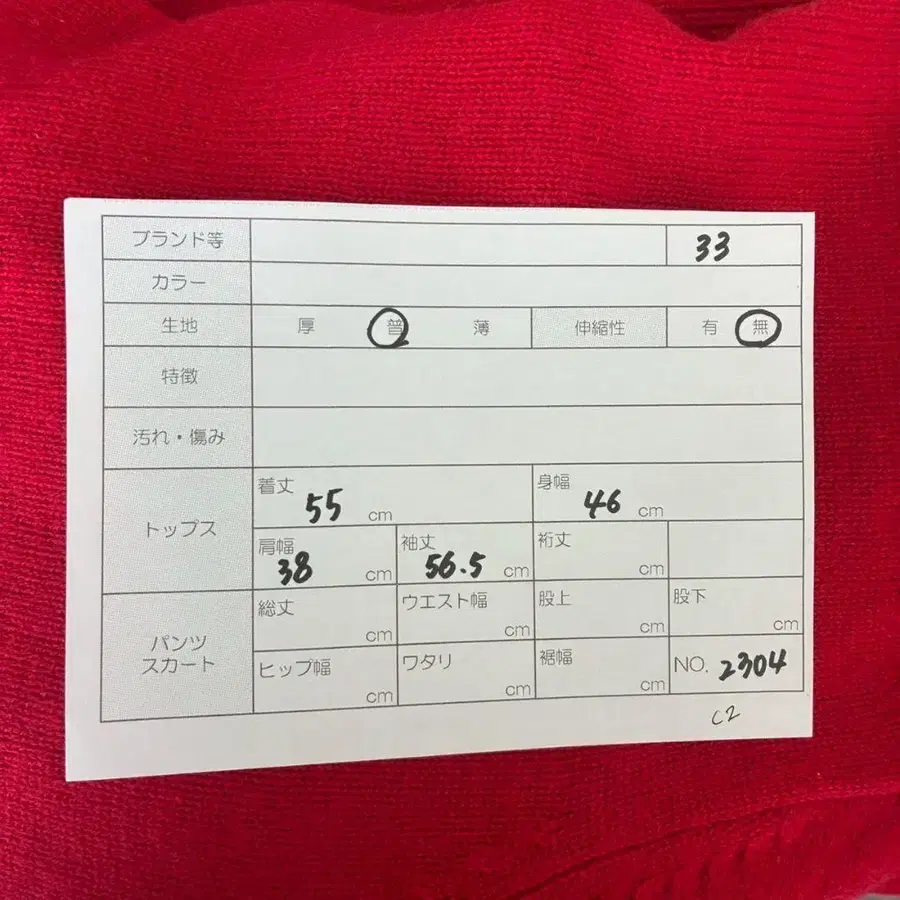 ブランド等 33
カラー
生地 厚 普 薄 伸縮性 有 無
特徴
汚れ・傷み
トップス
着丈 55 cm 身幅 46 cm
肩幅 38 cm 袖丈 56.5 cm 裄丈 cm
パンツ
スカート
総丈 cm ウエスト幅 cm 股上 cm 股下 cm
ヒップ幅 cm ワタリ cm 裾幅 cm NO. 2304
C2